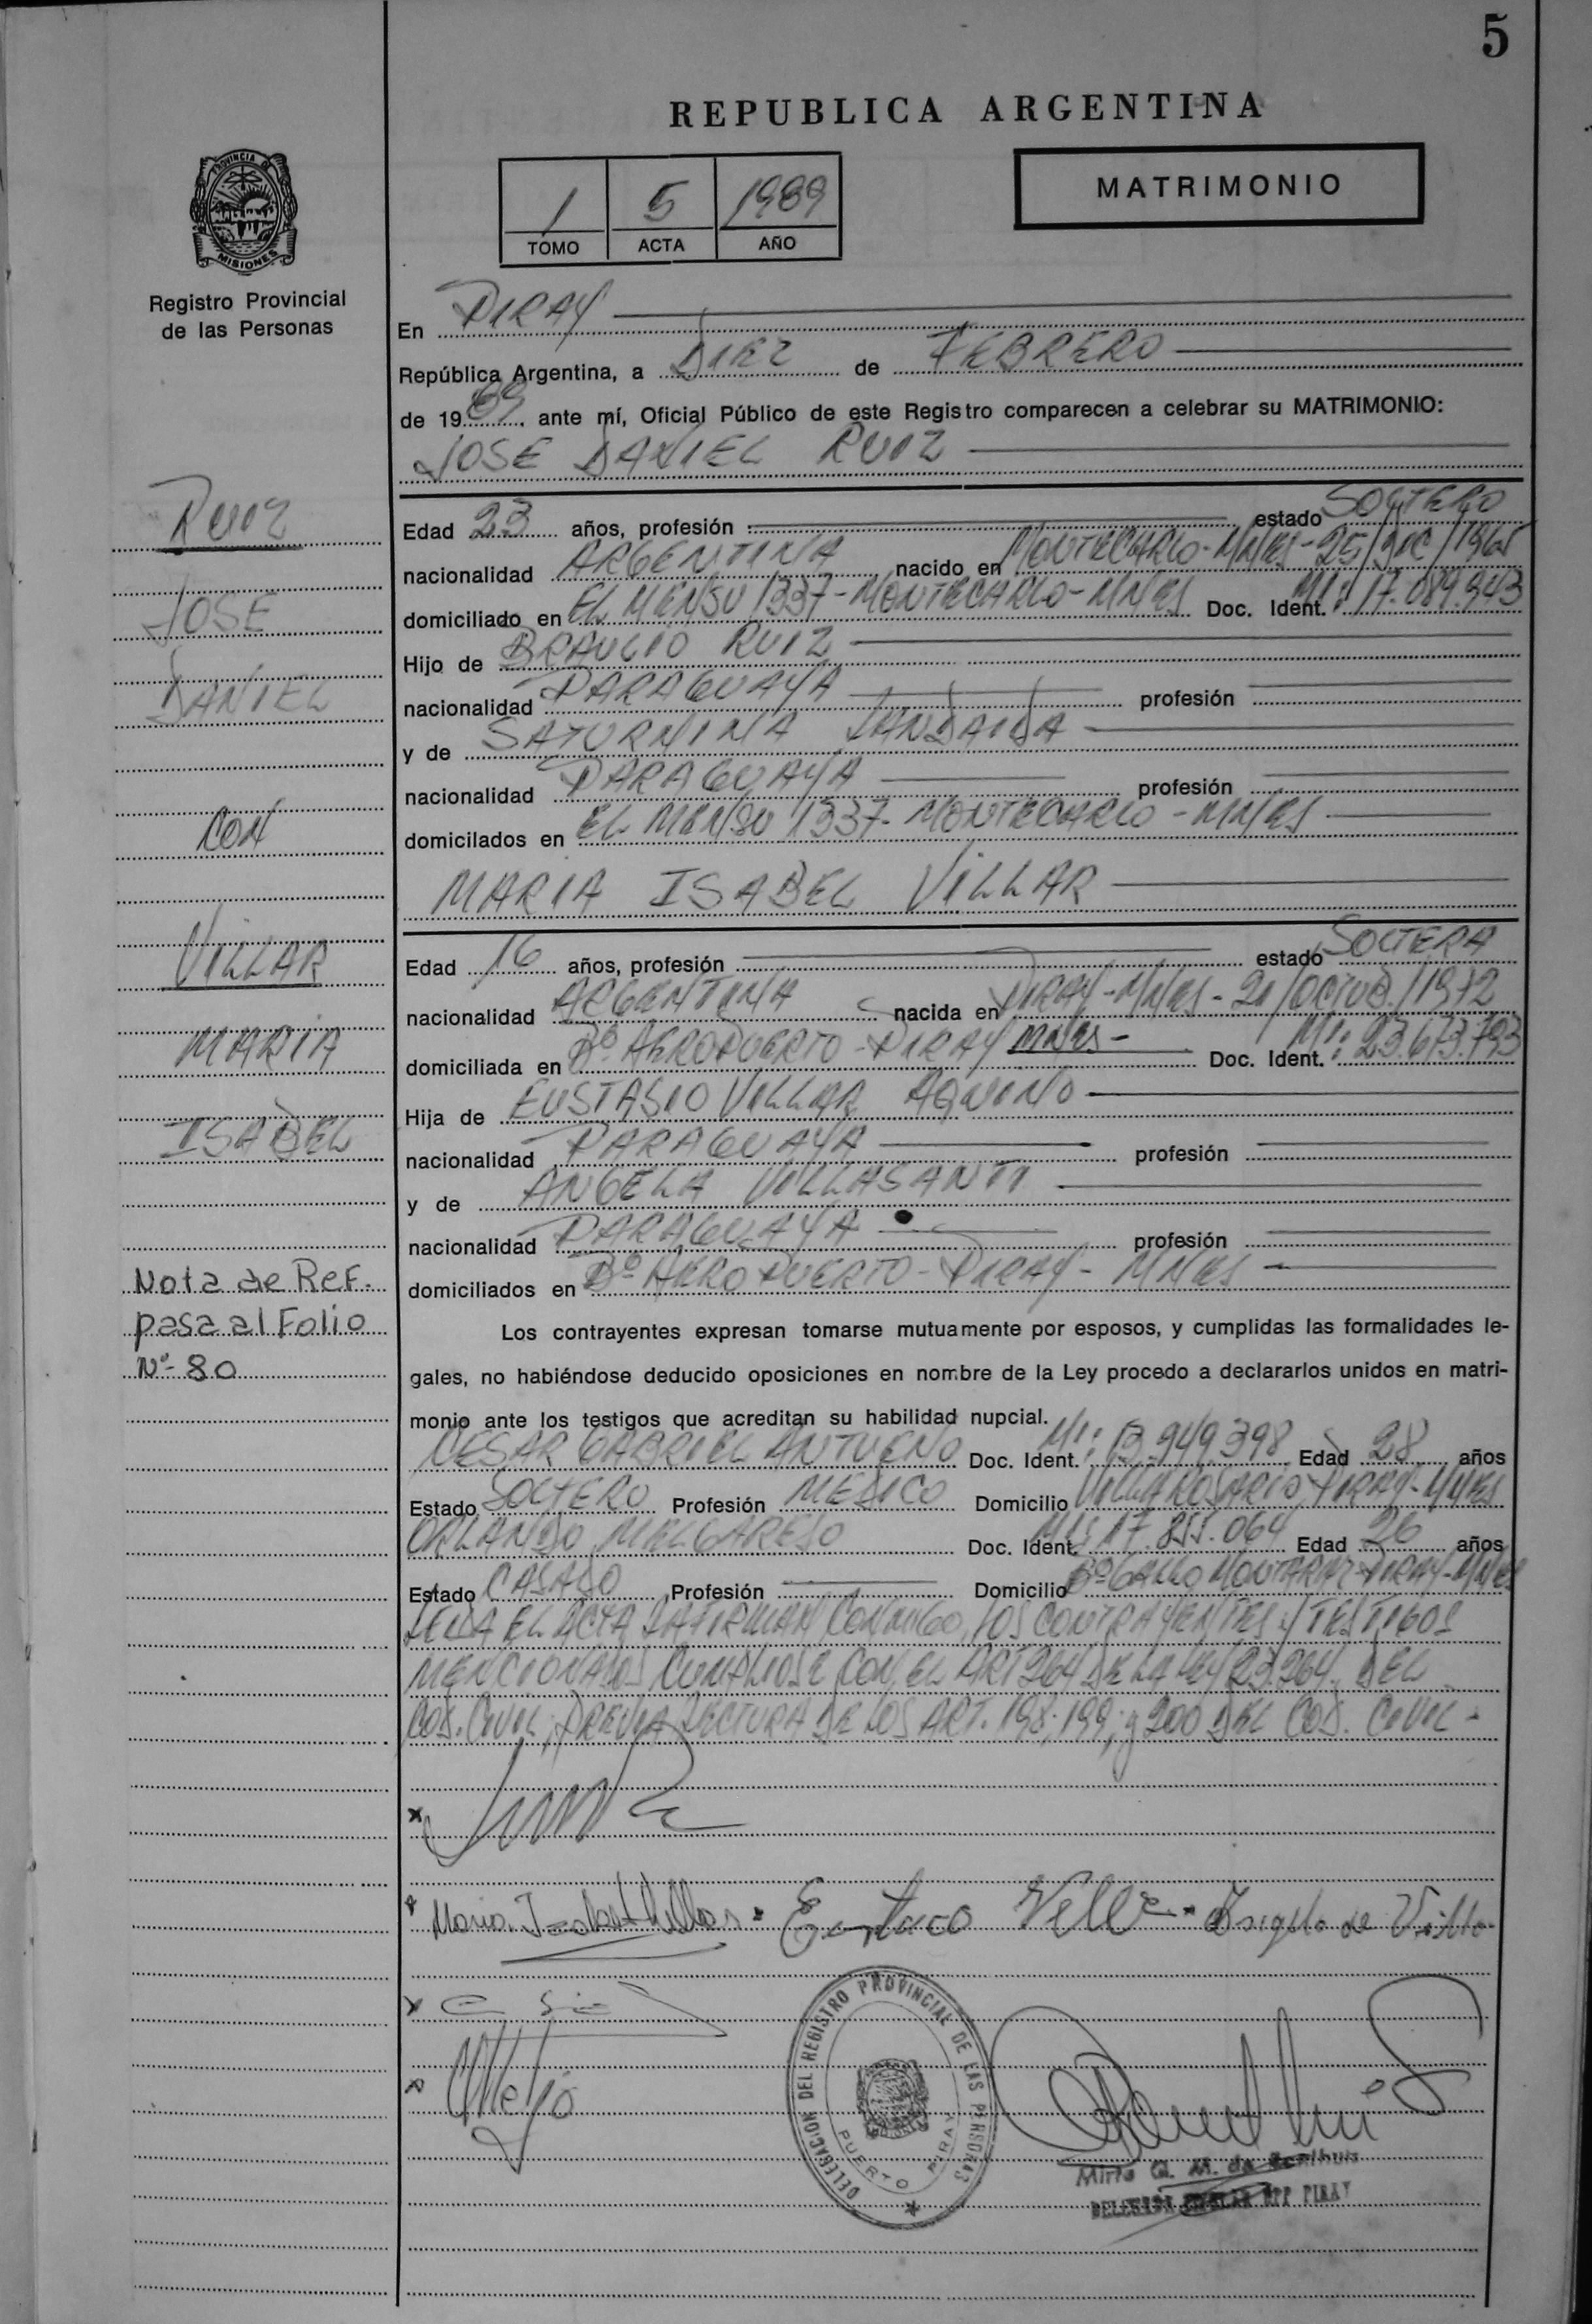 5
REPUBLICA ARGENTINA
1 5 1989
TOMO ACTA AÑO
MATRIMONIO
PROVINCIA DE
MISIONES
Registro Provincial
de las Personas
En PIRAY
República Argentina, a DIEZ de FEBRERO
de 1989, ante mí, Oficial Público de este Registro comparecen a celebrar su MATRIMONIO:
JOSE DANIEL RUIZ
Edad 23 años, profesión estado SOLTERO
nacionalidad ARGENTINA nacido en MONTECARLO-MNES-25/DIC/1965
domiciliado en EL MENSU 1337-MONTECARLO-MNES Doc. Ident. MI: 17.089.943
Hijo de BRAULIO RUIZ
nacionalidad PARAGUAYA profesión
y de SATURNINA
nacionalidad PARAGUAYA profesión
domicilados en EL MENSU 1337-MONTECARLO-MNES
MARIA ISABEL VILLAR
Edad 16 años, profesión estado SOLTERA
nacionalidad ARGENTINA nacida en PIRAY-MNES-21/OCTUB./1972
domiciliada en Bº AEROPUERTO-PIRAY MNES- Doc. Ident. MI: 23.673.793
Hija de EUSTASIO VILLAR AQUINO
nacionalidad PARAGUAYA profesión
y de ANGELA VILLASANTI
nacionalidad PARAGUAYA profesión
domiciliados en Bº AEROPUERTO-PIRAY-MNES
Los contrayentes expresan tomarse mutuamente por esposos, y cumplidas las formalidades le-
gales, no habiéndose deducido oposiciones en nombre de la Ley procedo a declararlos unidos en matri-
monio ante los testigos que acreditan su habilidad nupcial.
CESAR GABRIEL ANTUENO Doc. Ident. MI: 13.949.398 Edad 28 años
Estado SOLTERO Profesión MEDICO Domicilio VILLA ROSARIO, PIRAY-MNES
ORLANDO MELGAREJO Doc. Ident. MI: 17.855.064 Edad 26 años
Estado CASADO Profesión Domicilio Bº PIRAY-MNES
LEIDA EL ACTA LA FIRMAN CONMIGO, LOS CONTRAYENTES Y TESTIGOS
MENCIONADOS CUMPLIOSE CON EL ART 264 DE LA LEY 23.264. DEL
COD. CIVIL; PREVIA LECTURA DE LOS ART. 198; 199; y 200 DEL COD. CIVIL-
Maria Izabel Villar
de Villar
DELEGACION DEL REGISTRO PROVINCIAL DE LAS PERSONAS
PUERTO PIRAY
Mirta G. M. de
PIRAY
RUIZ
JOSE
DANIEL
CON
VILLAR
MARIA
ISABEL
Nota de Ref.
pasa al Folio
Nº 80